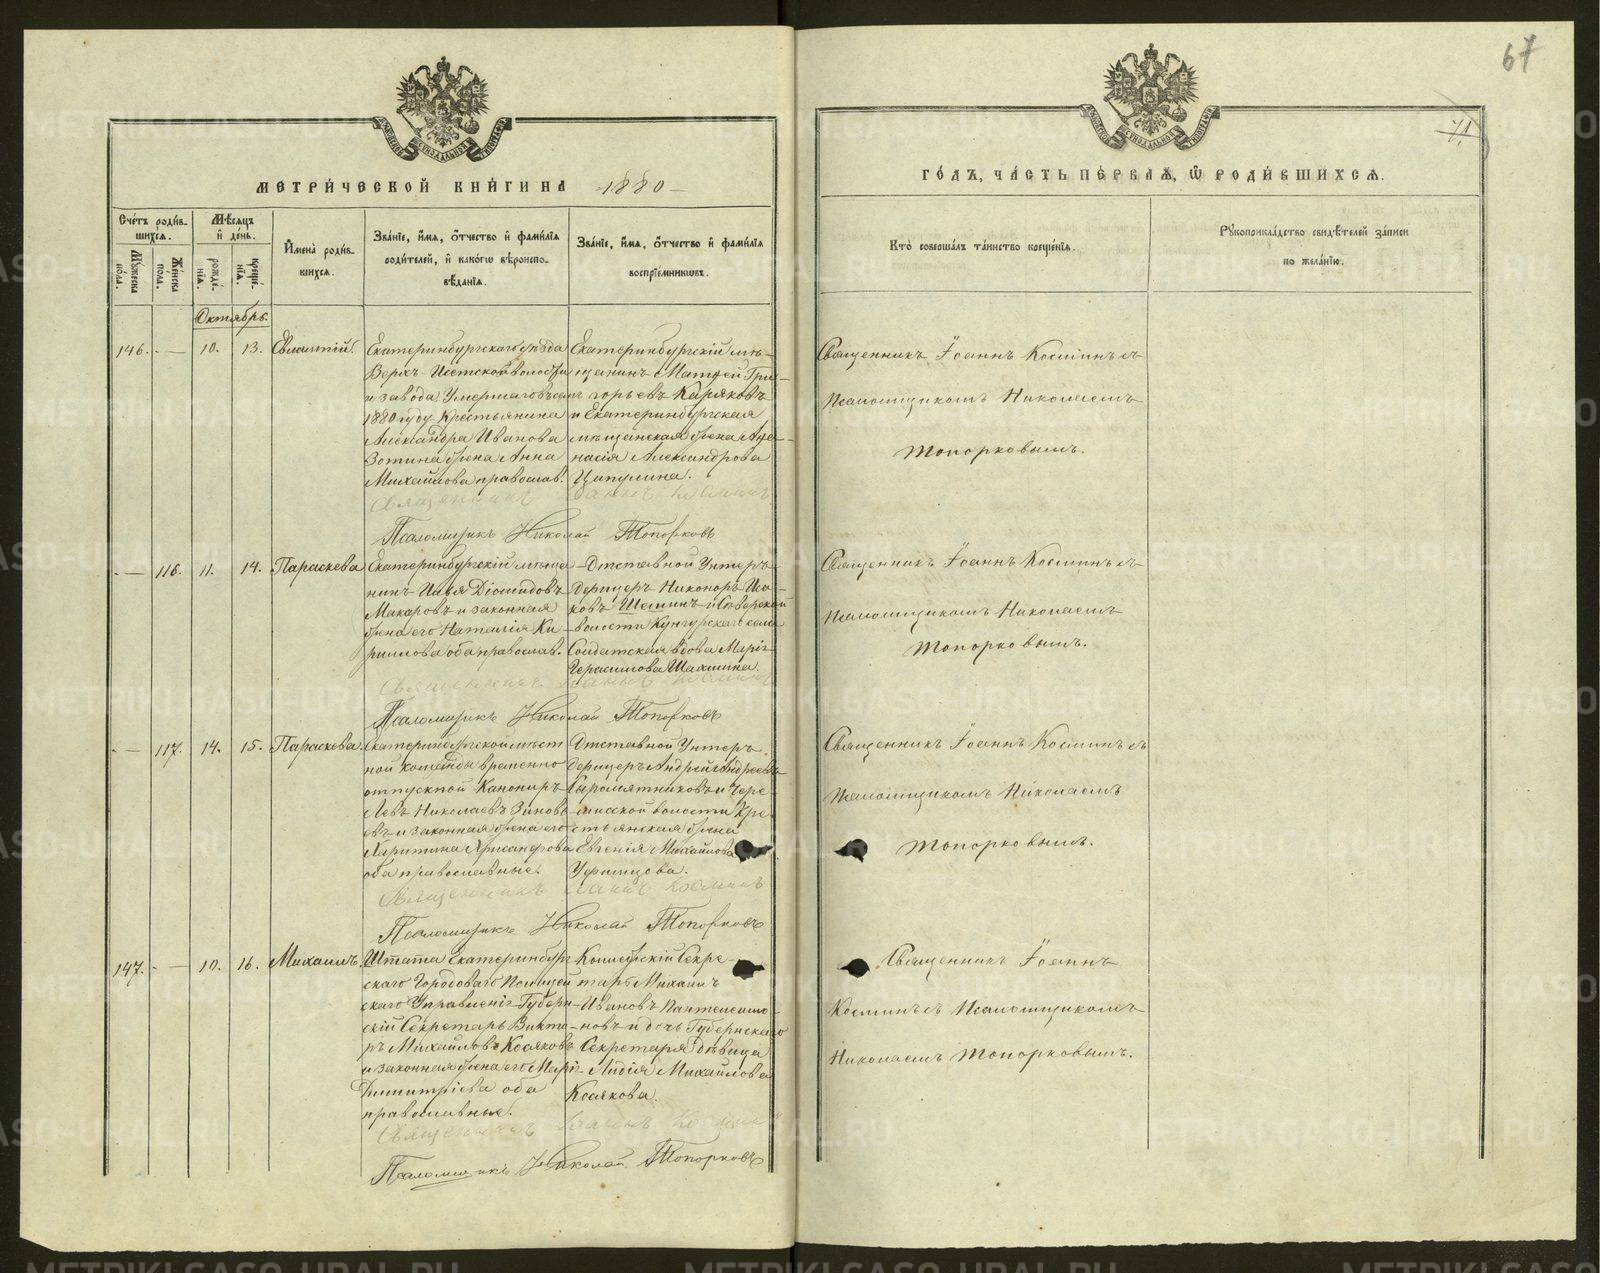 67
71
МЕТРИ́ЧЕСКОЙ КНИ́ГИ НА 1880
ГО́ДЪ, ЧА́СТЬ ПЕ́РВАѦ, Ѽ РОДИ́ВШИХСѦ.
Сче́тъ роди́в-
шихсѧ.
Мѣ́сѧцъ
и҆ де́нь.
Му́жеска
пола.
Же́нска
пола.
рожде́-
нїѧ.
креще́-
нїѧ.
И҆мена̀ роди́в-
шихсѧ.
Зва́нїе, и҆́мѧ, ѻ҆́тчество и҆ фами́лїѧ
роди́телей, и҆ како́гѡ вѣроиспо-
вѣ́данїѧ.
Зва́нїе, и҆́мѧ, ѻ҆́тчество и҆ фами́лїѧ
воспрїе́мникѡвъ.
Кто̀ соверша́лъ та́инство креще́нїѧ.
Рꙋкоприкла́дство свидѣ́телей за́писи
по жела́нїю.
Октябрь.
146. — 10. 13. Евлампій.
Екатеринбургскаго уѣзда
Верхъ-Исетской волости
и завода Умершаго въ семъ
1880 году Крестьянина
Александра Иванова
Зотина жена Анна
Михайлова православ.
Екатеринбургскій мѣ-
щанинъ Матѳей Гри-
горьевъ Каряковъ
и Екатеринбургская
мѣщанская жена Ана-
насія Александрова
Ципулина.
Священникъ Іоаннъ Косминъ
Псаломщикъ Николай Топорковъ
Священникъ Іоаннъ Косминъ съ
псаломщикомъ Николаемъ
Топорковымъ.
— 116. 11. 14. Параскева
Екатеринбургскій мѣща-
нинъ Илья Діомидовъ
Макаровъ и законная
жена его Наталія Ки-
риллова оба православ.
Отставной Унтеръ-
Офицеръ Никоноръ Иса-
ковъ Шеминъ и
волости Кунгурскаго
Солдатская вдова Марія
Герасимова Шахмина.
Священникъ Іоаннъ Косминъ
Псаломщикъ Николай Топорковъ
Священникъ Іоаннъ Косминъ съ
псаломщикомъ Николаемъ
Топорковымъ.
— 117. 14. 15. Параскева.
Екатеринбургской мѣст-
ной команды временно
отпускной Канониръ
Левъ Николаевъ Зиновь-
евъ и законная жена его
Харитина Хрисанфова
оба православные.
Отставной Унтеръ
Офицеръ Андрей Андреевъ
Сыромятниковъ и Чере-
мисской волости Кре-
стьянская жена
Евгенія Михайлова
Уфимцова.
Священникъ Іоаннъ Косминъ
Псаломщикъ Николай Топорковъ
Священникъ Іоаннъ Косминъ съ
псаломщикомъ Николаемъ
Топорковымъ.
147. — 10. 16. Михаилъ.
Штата Екатеринбург-
скаго Городоваго Полицей-
скаго Управленія Губерн-
скій Секретарь Викто-
ръ Михайловъ Косяковъ
и законная жена его Марія
Димитріева оба
православные.
Коллежскій Секре-
тарь Михаилъ
Ивановъ Пантелеймо-
новъ и дочь Губернскаго
Секретаря дѣвица
Лидія Михайлова
Косякова.
Священникъ Іоаннъ Косминъ
Псаломщикъ Николай Топорковъ
Священникъ Іоаннъ
Косминъ съ Псаломщикомъ
Николаемъ Топорковымъ.
METRIKI.GASO-URAL.RU